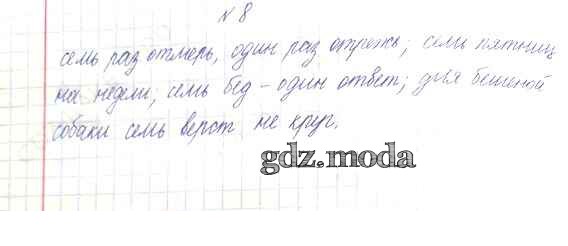 № 8
семь раз отмерь, один раз отрежь; семь пятниц
на недели; семь бед – один ответ; для бешеной
собаки семь верст не круг.
gdz.moda